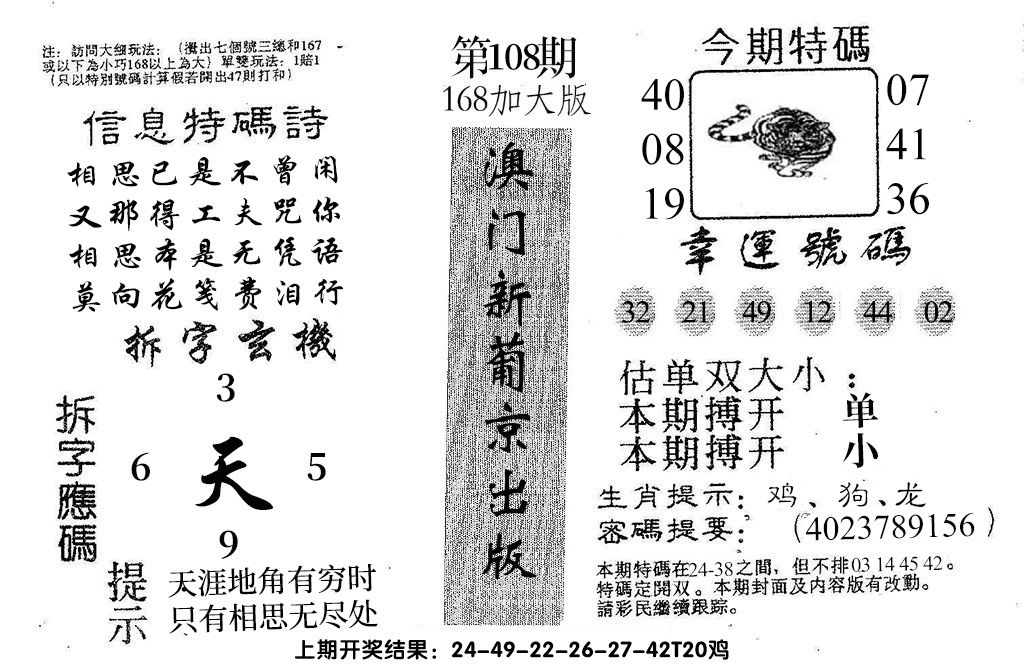 注：訪問大细玩法：（攪出七個號三總和167
或以下為小巧168以上為大）單雙玩法：1赔1
（只以特別號碼計算假若開出47則打和）
信息特碼詩
相思已是不曾闲
又那得工夫咒你
相思本是无凭语
莫向花笺费泪行
拆字玄機
拆字應碼
3
6 天 5
9
提示
天涯地角有穷时
只有相思无尽处
第108期
168加大版
澳门新葡京出版
今期特碼
40 07
08 41
19 36
幸運號碼
32 21 49 12 44 02
估单双大小：
本期搏开 单
本期搏开 小
生肖提示：鸡、狗、龙
密碼提要：（4023789156）
本期特碼在24-38之間，但不排03 14 45 42。
特碼定開双。本期封面及内容版有改動。
請彩民繼續跟踪。
上期开奖结果：24-49-22-26-27-42T20鸡